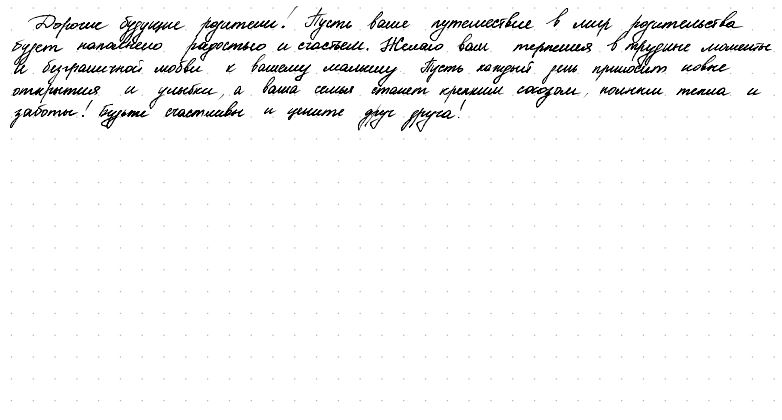 Дорогие будущие родители! Пусть ваше путешествие в мир родительства
будет наполнено радостью и счастьем. Желаю вам терпения в трудные моменты
и безграничной любви к вашему малышу. Пусть каждый день приносит новые
открытия и улыбки, а ваша семья станет крепким союзом, полным тепла и
заботы! Будьте счастливы и цените друг друга!